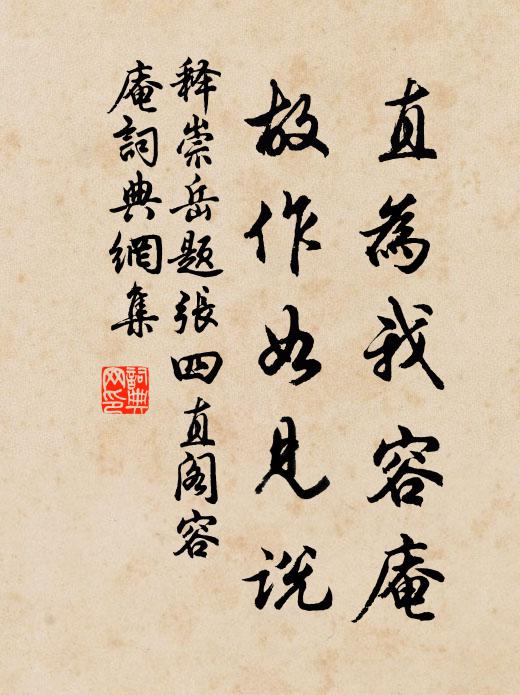 直為我容庵
故作如見說
釋崇岳題張四直閣容
庵詞典網集
詞典
網印